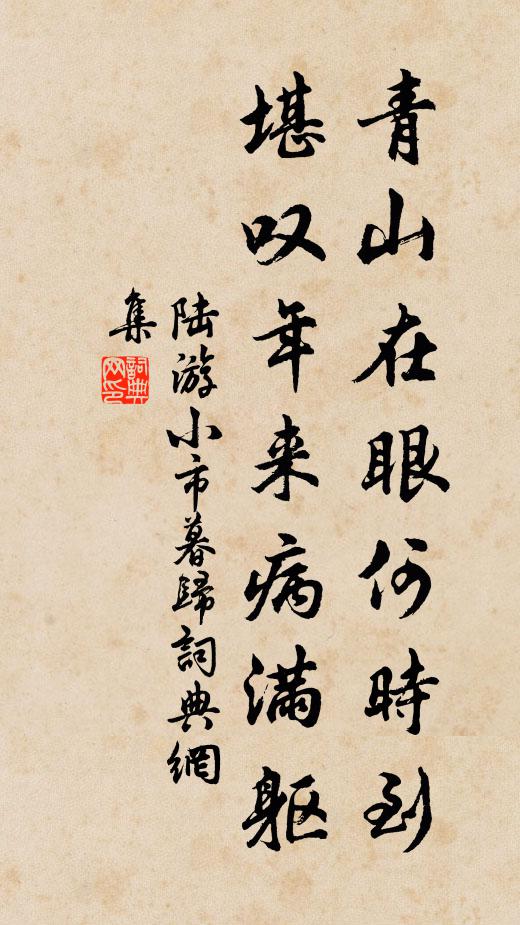 青山在眼何時到
堪叹年来病满躯
陆游小市暮歸詞典網
集
詞典网印